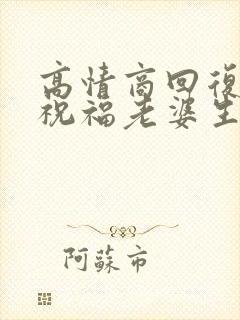 高情商回復
祝福老婆生
阿蘇市